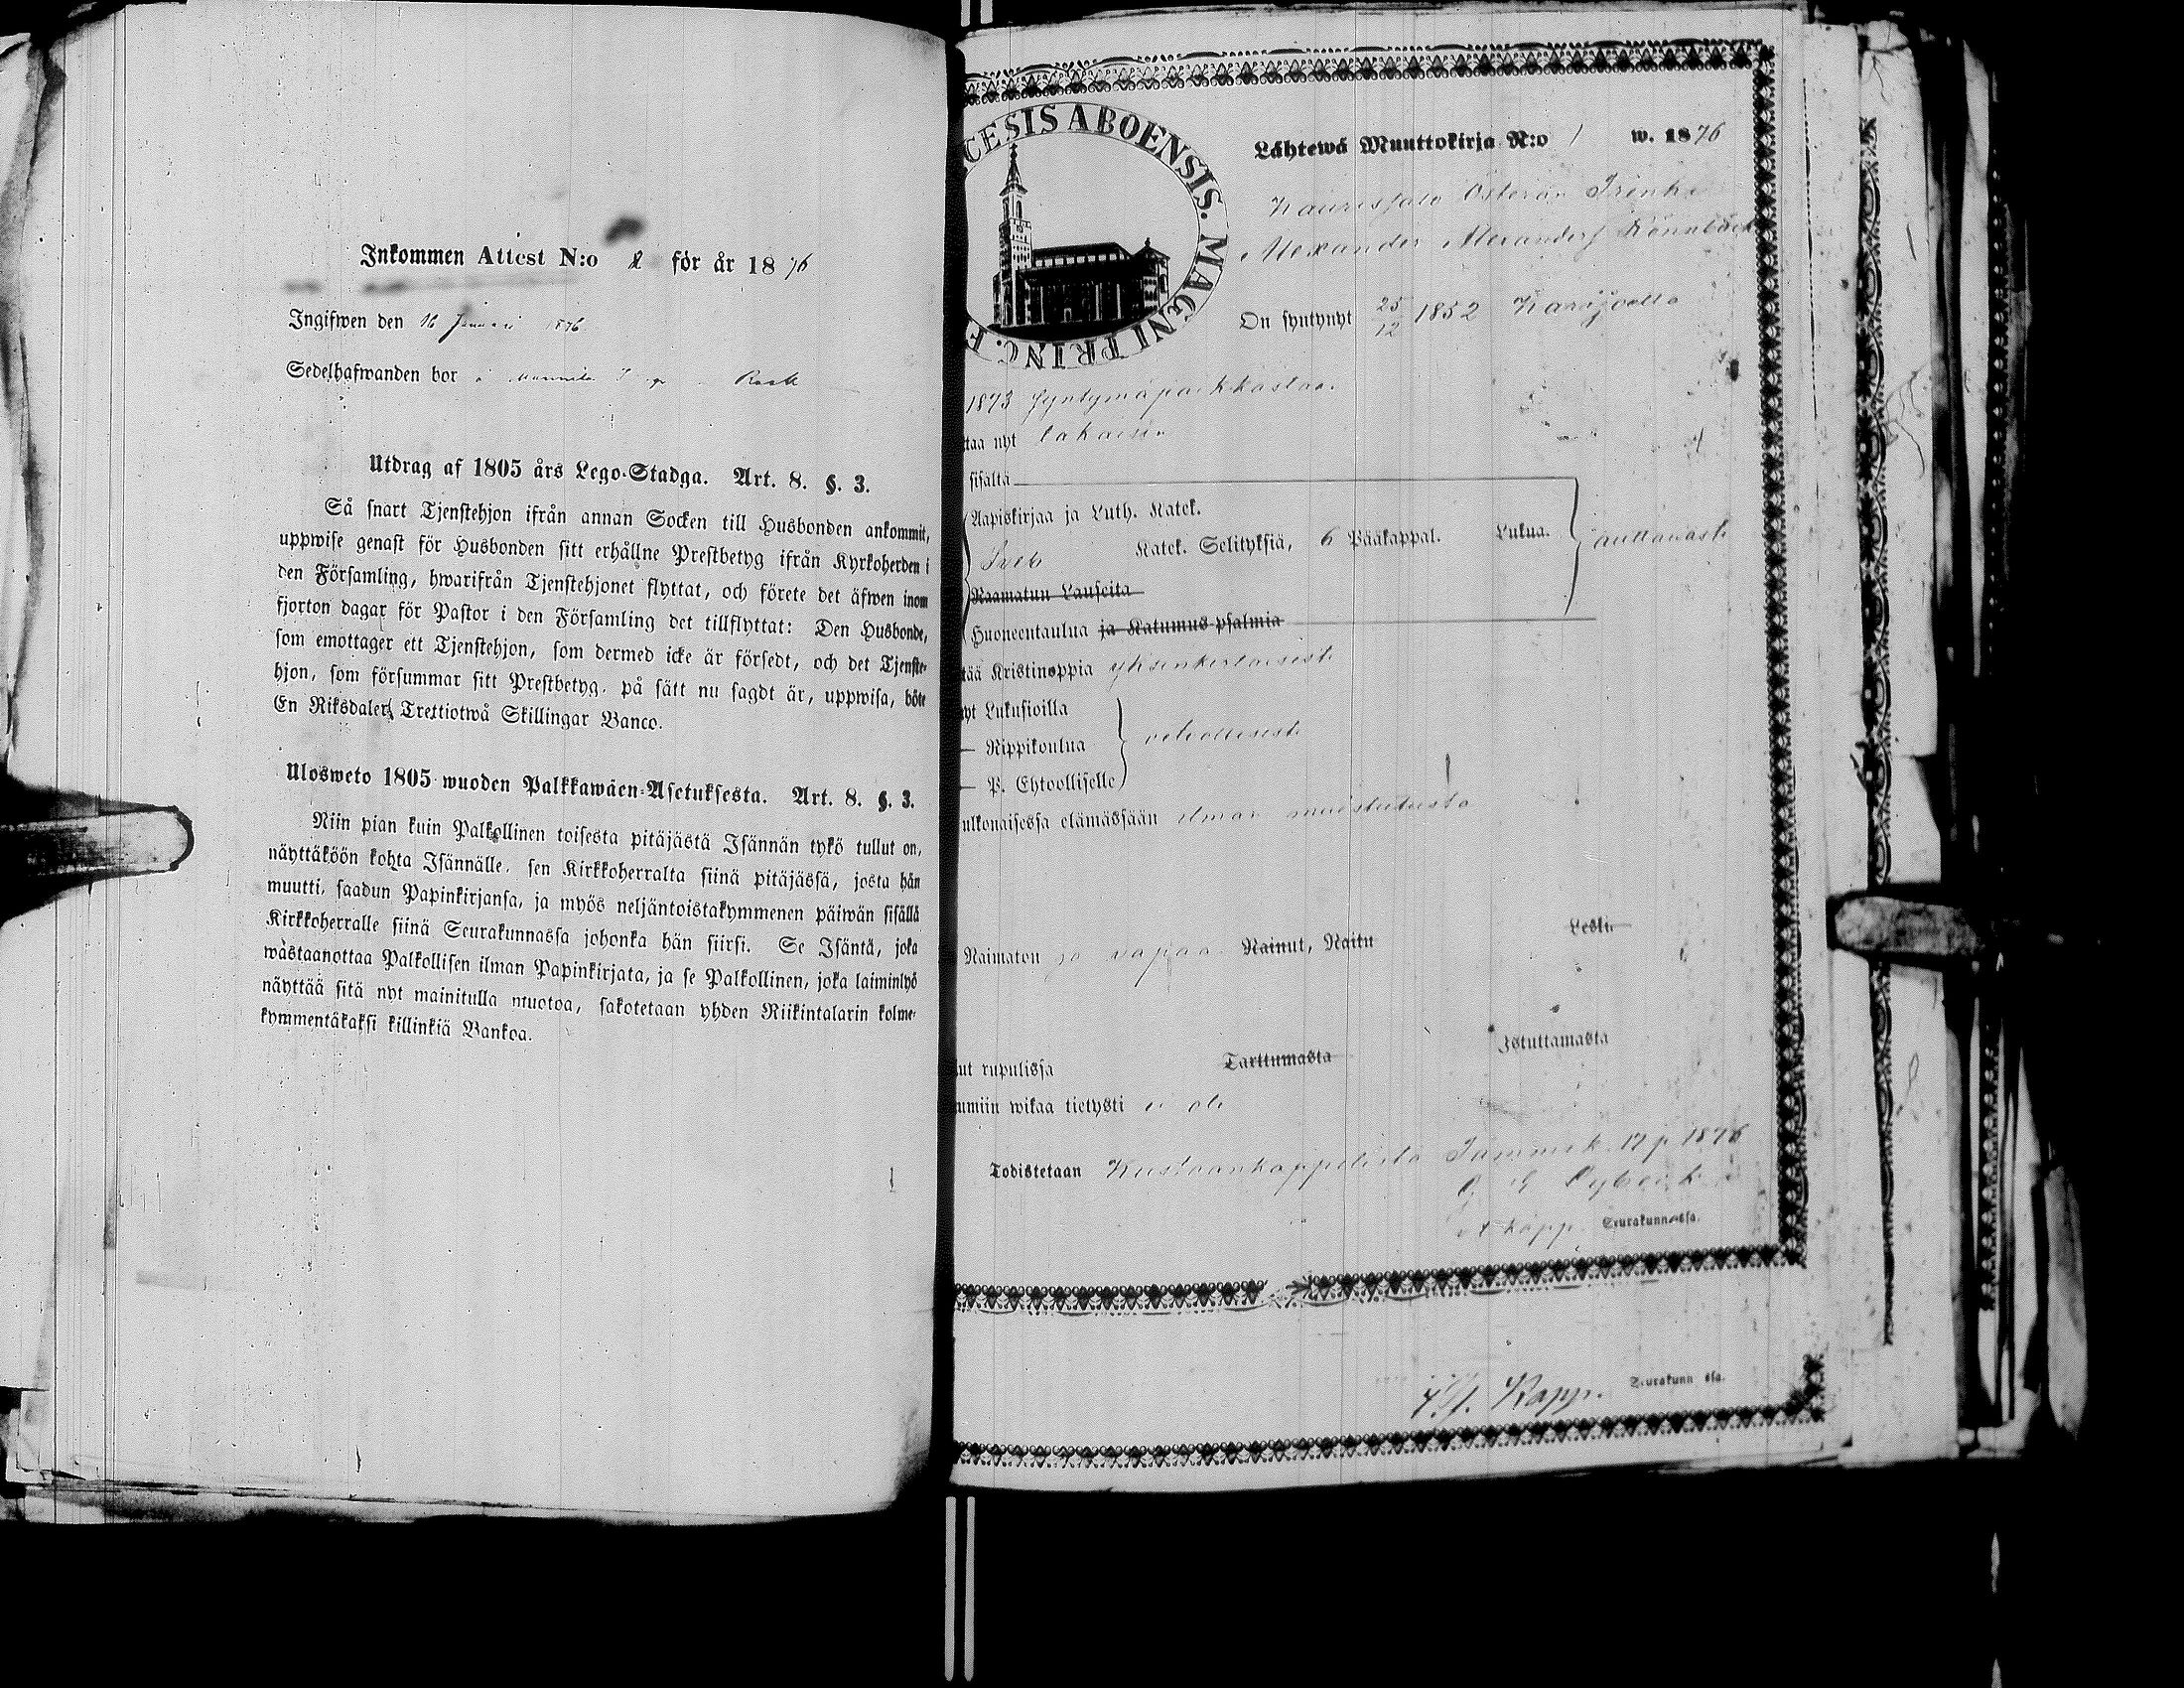 Inkommen Attest N:o 2 för år 1876
Ingifwen den 16 Januari 1876
Sedelhafwanden bor
Utdrag af 1805 års Lego-Stadga. Art. 8. §. 3.
Så snart Tjenstehjon ifrån annan Socken till Husbonden ankommit,
uppwise genast för Husbonden sitt erhållne Prestbetyg ifrån Kyrkoherden i
den Församling, hwarifrån Tjenstehjonet flyttat, och förete det äfwen inom
fjorton dagar för Pastor i den Församling det tillflyttat: Den Husbonde,
som emottager ett Tjenstehjon, som dermed icke är försedt, och det Tjenste-
hjon, som försummar sitt Prestbetyg, på sätt nu sagdt är, uppwisa, böte
En Riksdaler Trettiotwå Skillingar Banco.
Ulosweto 1805 wuoden Palkkawäen-Asetuksesta. Art. 8. §. 3.
Niin pian kuin Palkollinen toisesta pitäjästä Isännän tykö tullut on,
näyttäköön kohta Isännälle, sen Kirkkoherralta siinä pitäjässä, josta hän
muutti, saadun Papinkirjansa, ja myös neljäntoistakymmenen päiwän sisällä
Kirkkoherralle siinä Seurakunnassa johonka hän siirsi. Se Isäntä, joka
wastaanottaa Palkollisen ilman Papinkirjata, ja se Palkollinen, joka laiminlyö
näyttää sitä nyt mainitulla muotoa, sakotetaan yhden Riikintalarin kolme-
kymmentäkaksi killinkiä Bankoa.
CESIS ABOENSIS. MAGNI PRINC. F
Lähtewä Muuttokirja N:o 1 w. 1876
Alexander Alexanders Rönnbäck
On syntynyt 25/12 1852 Karijoella
1873 syntymäpaikkastaan
taa nyt takaisin
sisältä
Aapiskirjaa ja Luth. Katek.
Katek. Selityksiä, 6 Pääkappal. Lukua. auttawasti
Raamatun Lauseita
Huoneentaulua ja Katumus-psalmia
tää Kristinoppia yksinkertaisesti
yt Lukusioilla
— Rippikoulua
— P. Ehtoolliselle
ulkonaisessa elämässään ilman muistutusta
Naimaton ja vapaa Nainut, Naitu Leski
ut rupulissa Tarttumasta Istuttamasta
umiin wikaa tietysti ei ole
Todistetaan Kustaankappelista Tammik. 17 p. 1876
Kapp. Seurakunnassa.
Kapp. Seurakunn ssa.